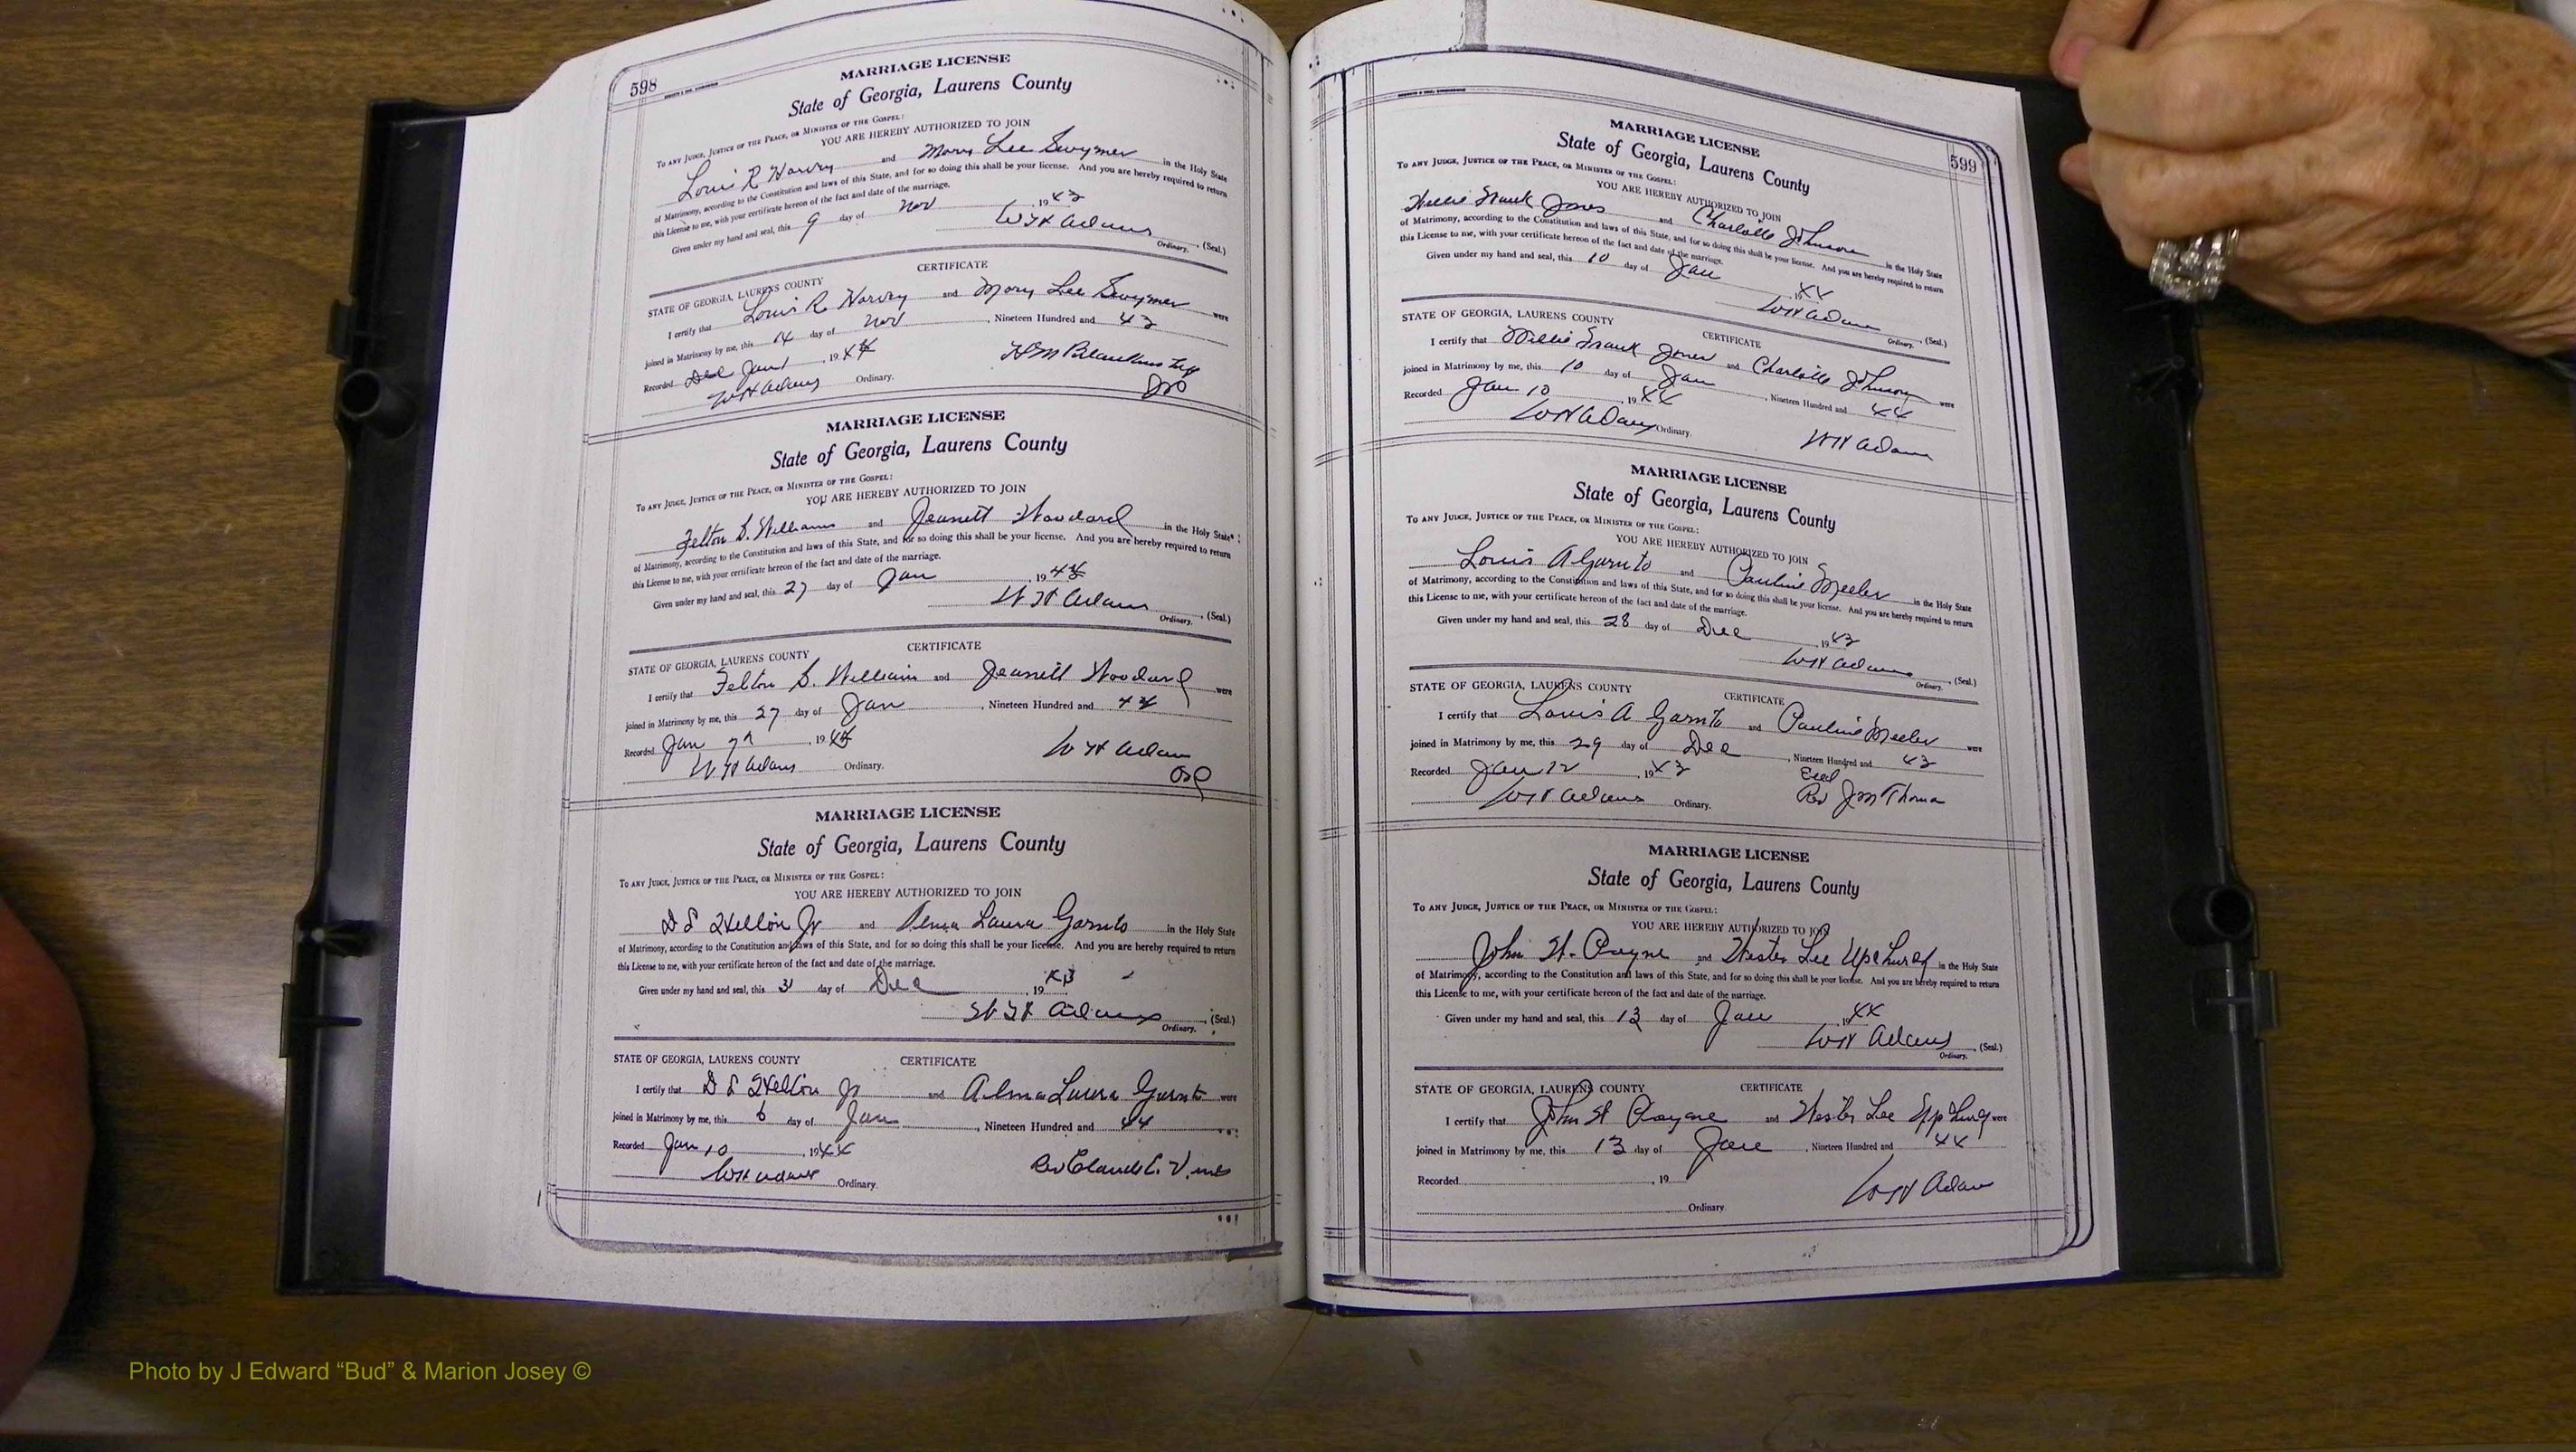 598
MARRIAGE LICENSE
State of Georgia, Laurens County
To any Judge, Justice of the Peace, or Minister of the Gospel:
YOU ARE HEREBY AUTHORIZED TO JOIN
Louis R Harvey and Mary Lee Swymer in the Holy State
of Matrimony, according to the Constitution and laws of this State, and for so doing this shall be your license. And you are hereby required to return
this License to me, with your certificate hereon of the fact and date of the marriage.
Given under my hand and seal, this 9 day of Nov 1943
W H Adams (Seal.)
Ordinary.
CERTIFICATE
STATE OF GEORGIA, LAURENS COUNTY
I certify that Louis R. Harvey and Mary Lee Swymer were
joined in Matrimony by me, this 14 day of Nov, Nineteen Hundred and 43
Recorded Jan 1, 1944
W H Adams Ordinary.
MARRIAGE LICENSE
State of Georgia, Laurens County
To any Judge, Justice of the Peace, or Minister of the Gospel:
YOU ARE HEREBY AUTHORIZED TO JOIN
Felton S. Williams and Jeanett Woodard in the Holy State
of Matrimony, according to the Constitution and laws of this State, and for so doing this shall be your license. And you are hereby required to return
this License to me, with your certificate hereon of the fact and date of the marriage.
Given under my hand and seal, this 27 day of Jan, 1944
W H Adams (Seal.)
Ordinary.
CERTIFICATE
STATE OF GEORGIA, LAURENS COUNTY
I certify that Felton S. William and Jeanett Woodard were
joined in Matrimony by me, this 27 day of Jan, Nineteen Hundred and 44
Recorded Jan, 1944
W H Adam
W H Adams Ordinary.
MARRIAGE LICENSE
State of Georgia, Laurens County
To any Judge, Justice of the Peace, or Minister of the Gospel:
YOU ARE HEREBY AUTHORIZED TO JOIN
Jr and Alma Laura Garnto in the Holy State
of Matrimony, according to the Constitution and laws of this State, and for so doing this shall be your license. And you are hereby required to return
this License to me, with your certificate hereon of the fact and date of the marriage.
Given under my hand and seal, this day of Dec, 1943
W H Adams (Seal.)
Ordinary.
STATE OF GEORGIA, LAURENS COUNTY CERTIFICATE
I certify that Jr and Alma Laura Garnto were
joined in Matrimony by me, this 6 day of Jan, Nineteen Hundred and 44
Recorded Jan 10, 1944
Rev Claude C. Vines
W H Adams Ordinary.
599
MARRIAGE LICENSE
State of Georgia, Laurens County
To any Judge, Justice of the Peace, or Minister of the Gospel:
YOU ARE HEREBY AUTHORIZED TO JOIN
Willie Frank Jones and Charlotte Johnson in the Holy State
of Matrimony, according to the Constitution and laws of this State, and for so doing this shall be your license. And you are hereby required to return
this License to me, with your certificate hereon of the fact and date of the marriage.
Given under my hand and seal, this 10 day of Jan, 1944
W H Adams (Seal.)
Ordinary.
STATE OF GEORGIA, LAURENS COUNTY CERTIFICATE
I certify that Willie Frank Jones and Charlotte Johnson were
joined in Matrimony by me, this 10 day of Jan, Nineteen Hundred and 44
Recorded Jan 10, 1944
W H Adams Ordinary. W H Adams
MARRIAGE LICENSE
State of Georgia, Laurens County
To any Judge, Justice of the Peace, or Minister of the Gospel:
YOU ARE HEREBY AUTHORIZED TO JOIN
Louis A Garnto and Pauline Meeler in the Holy State
of Matrimony, according to the Constitution and laws of this State, and for so doing this shall be your license. And you are hereby required to return
this License to me, with your certificate hereon of the fact and date of the marriage.
Given under my hand and seal, this 28 day of Dec, 1943
W H Adams (Seal.)
Ordinary.
STATE OF GEORGIA, LAURENS COUNTY CERTIFICATE
I certify that Louis A Garnto and Pauline Meeler were
joined in Matrimony by me, this 29 day of Dec, Nineteen Hundred and 43
Recorded Jan 12, 1943
Rev J M Thomas
W H Adams Ordinary.
MARRIAGE LICENSE
State of Georgia, Laurens County
To any Judge, Justice of the Peace, or Minister of the Gospel:
YOU ARE HEREBY AUTHORIZED TO JOIN
John H. Payne and Hester Lee Upchurch in the Holy State
of Matrimony, according to the Constitution and laws of this State, and for so doing this shall be your license. And you are hereby required to return
this License to me, with your certificate hereon of the fact and date of the marriage.
Given under my hand and seal, this 13 day of Jan, 1944
W H Adams (Seal.)
Ordinary.
STATE OF GEORGIA, LAURENS COUNTY CERTIFICATE
I certify that John H Payne and Hester Lee were
joined in Matrimony by me, this 13 day of Jan, Nineteen Hundred and 44
Recorded, 19
W H Adams
Ordinary
Photo by J Edward “Bud” & Marion Josey ©